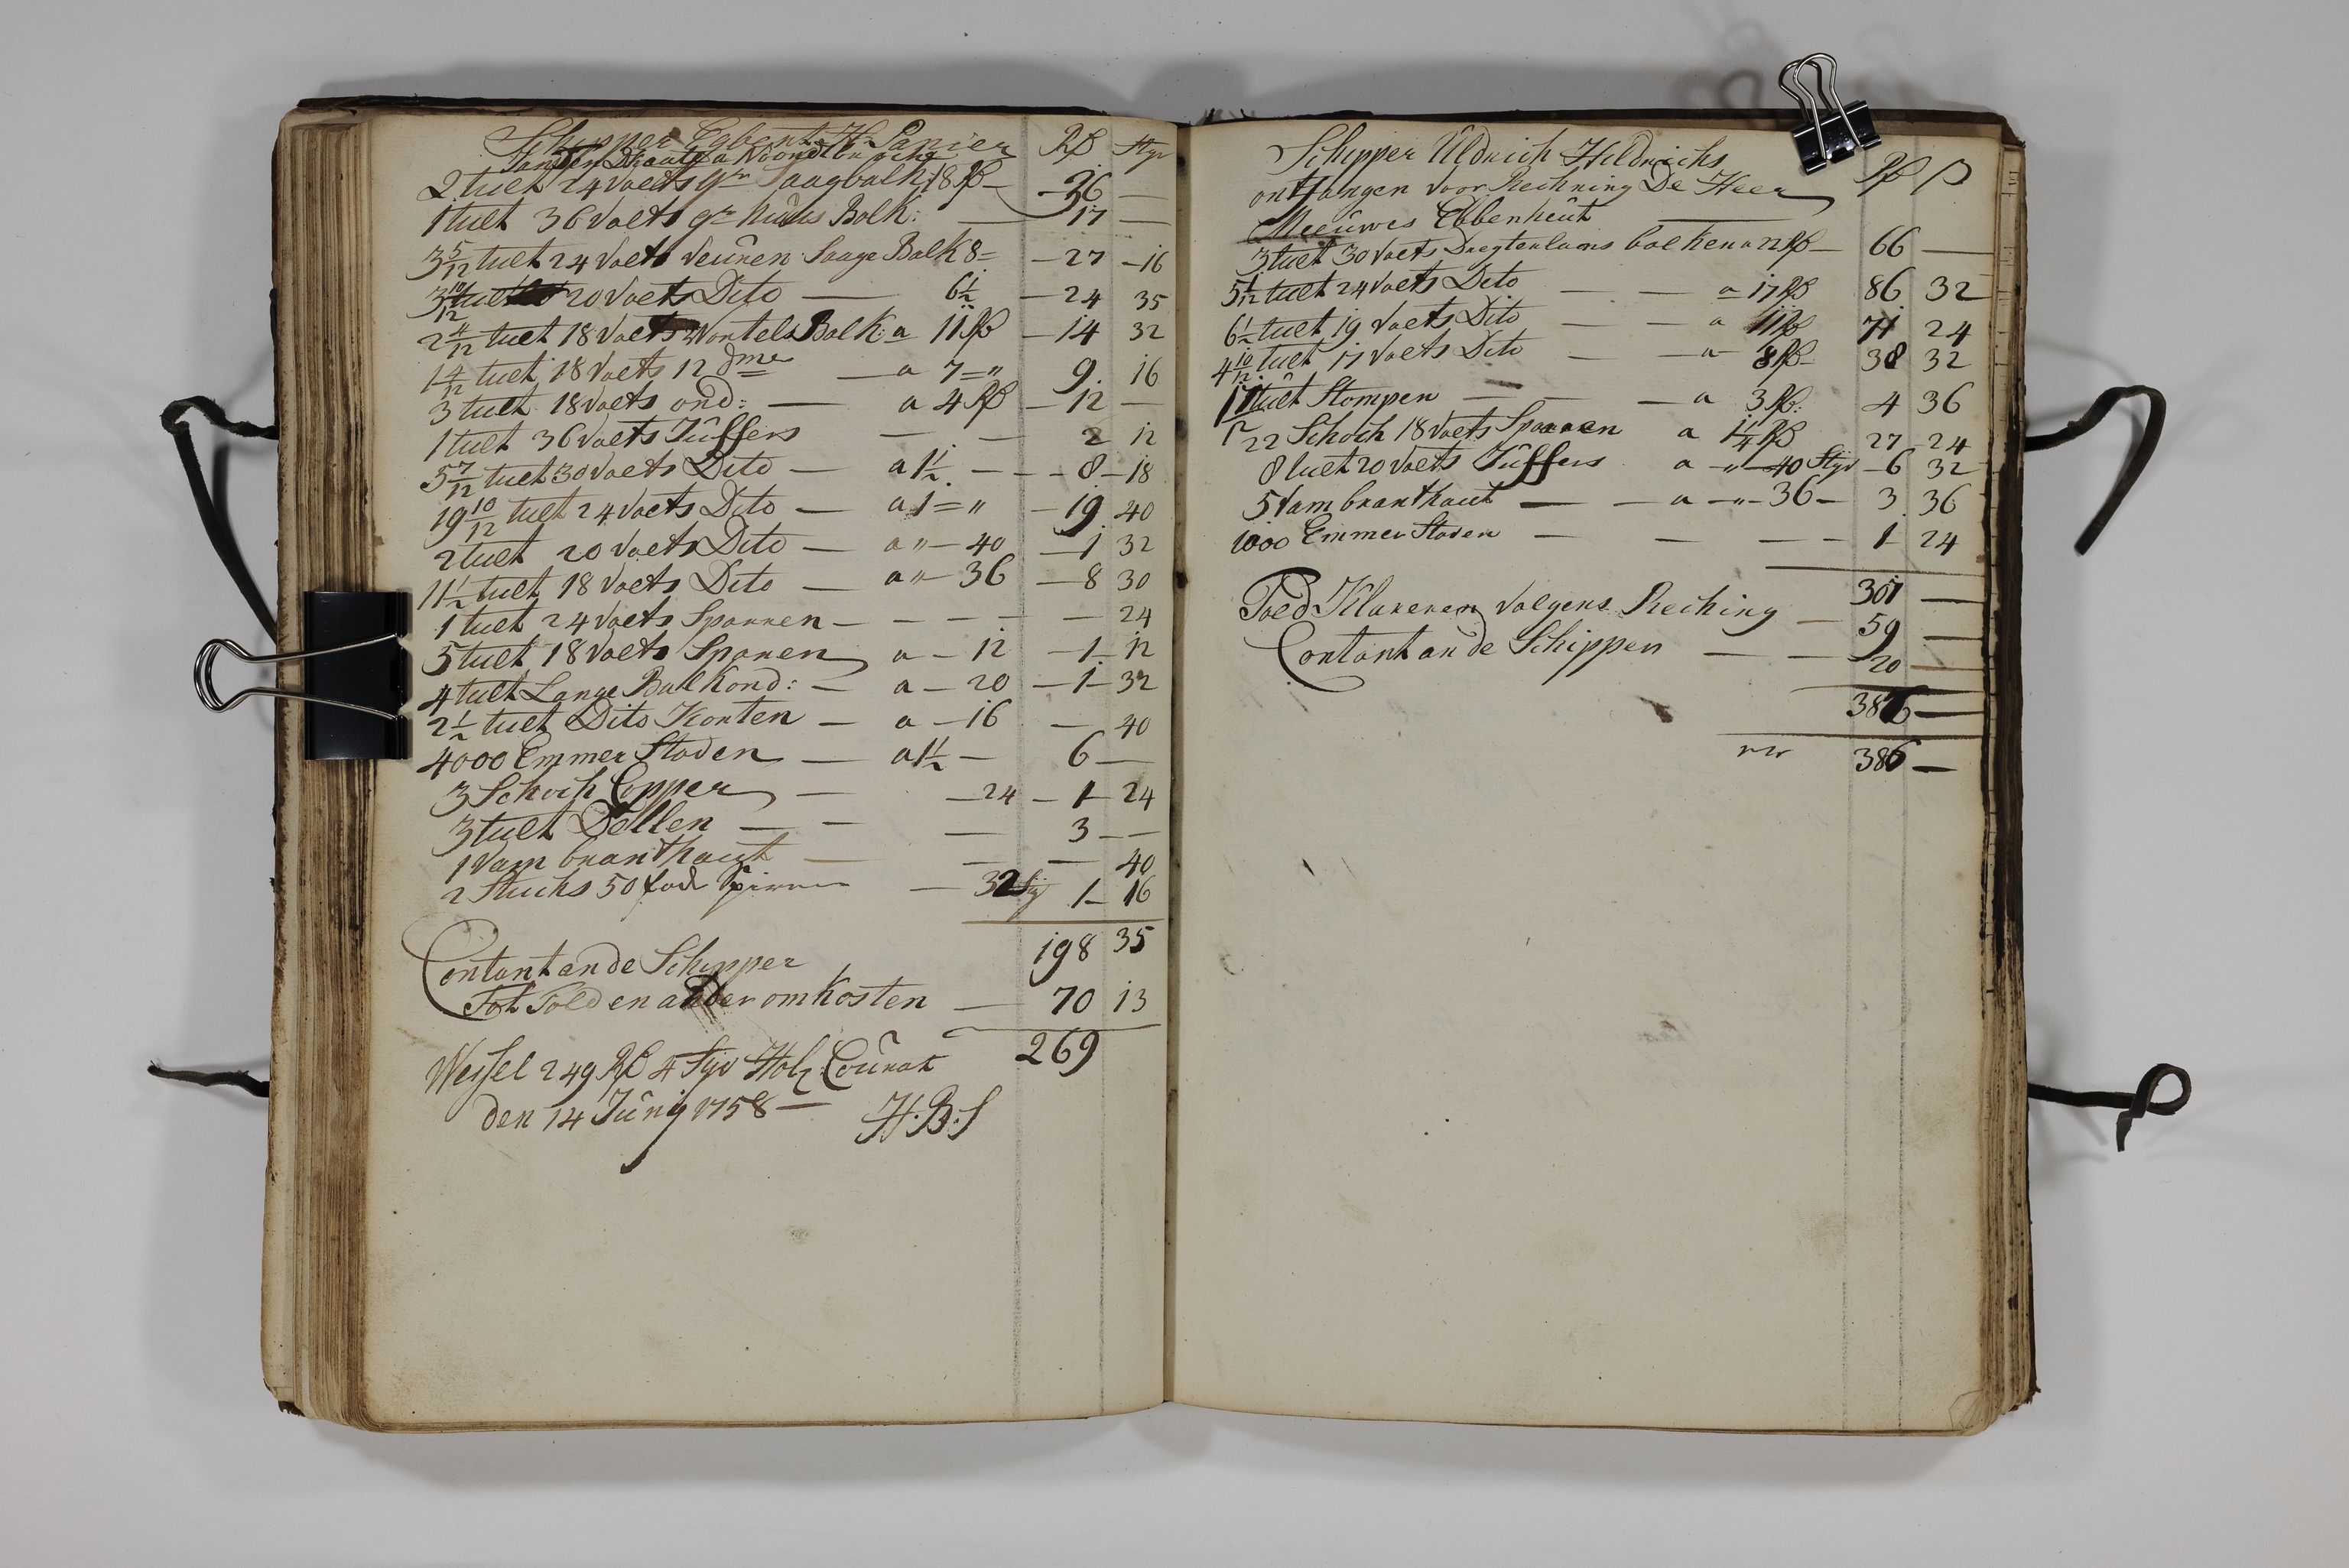 Schipper Egbert H. Panier Rß Styr
2 tult 24 Voets gr Saagbalk 18 Rß — 36 —
1 tult 36 Voets gr huus Balk: — 17 —
3 5/12 tult 24 Voets veuren Saage Balk 8= — 27 — 16
3 10/12 20 Voets Dito — 6 1/2 — 24 35
2 4/12 tult 18 Voets Wortels Balk: a 11 Rß — 14 32
1 4/12 tult 18 Voets 12 dme — a 7=" 9. 16
3 tult 18 Voets ond: — a 4 Rß — 12 —
1 tult 36 Voets Juffers — — 2 12
5 7/12 tult 30 Voets Dito — a 1 1/2 — — 8 — 18
19 10/12 tult 24 Voets Dito — a 1=" — 19 40
2 tult 20 Voets Dito — a " — 40 — 1 32
11 1/2 tult 18 Voets Dito — a " — 36 — 8 30
1 tult 24 Voets Sparren — — — — — 24
5 tult 18 Voets Sparen a — 12 — 1 — 12
4 tult Lange Balkond: — a — 20 — 1 — 32
2 1/2 tult Dito Korten — a — 16 — 40
4000 Emmer Staden — a 1 1/2 — 6 —
3 Schoch Epper — — 24 — 1 — 24
3 tult Dellen — — — 3 — —
1 Vam branthaut — — — 40
2 Stucks 50 fode — 32 Sty 1 — 16
198 35
Contant an de Schipper
Tot Told en ander omkosten — 70 13
269
Wessel 249 Rß 4 Styv Holz: Courat
den 14 Junij 1758 — H.B.S
Schipper Uldrich Hildrichs Rß ß
ontfangen voor Rechning De Heer
Meeuwes Ebbenheut
3 tult 30 Voets balken a 22 Rß — 66 —
5 1/12 tult 24 Voets Dito — — a 17 Rß 86 32
6 1/2 tult 19 Voets Dito — — a 11 Rß 71 24
4 10/12 tult 17 Voets Dito — — a 8 Rß 38 32
tult Stompen — — a 3 Rß: 4 36
22 Schoch 18 Voets Sparren a 1 1/4 Rß 27 24
8 tult 20 Voets Juffers a " — 40 Styv — 6 32
5 Vam branthaut — — a — " — 36 — 3 36
1000 Emmer Staden — — — — 1 24
307 —
Toed Klareren Volgens Reching — 59 —
Contant an de Schipper — — 20 —
386 —
386 —